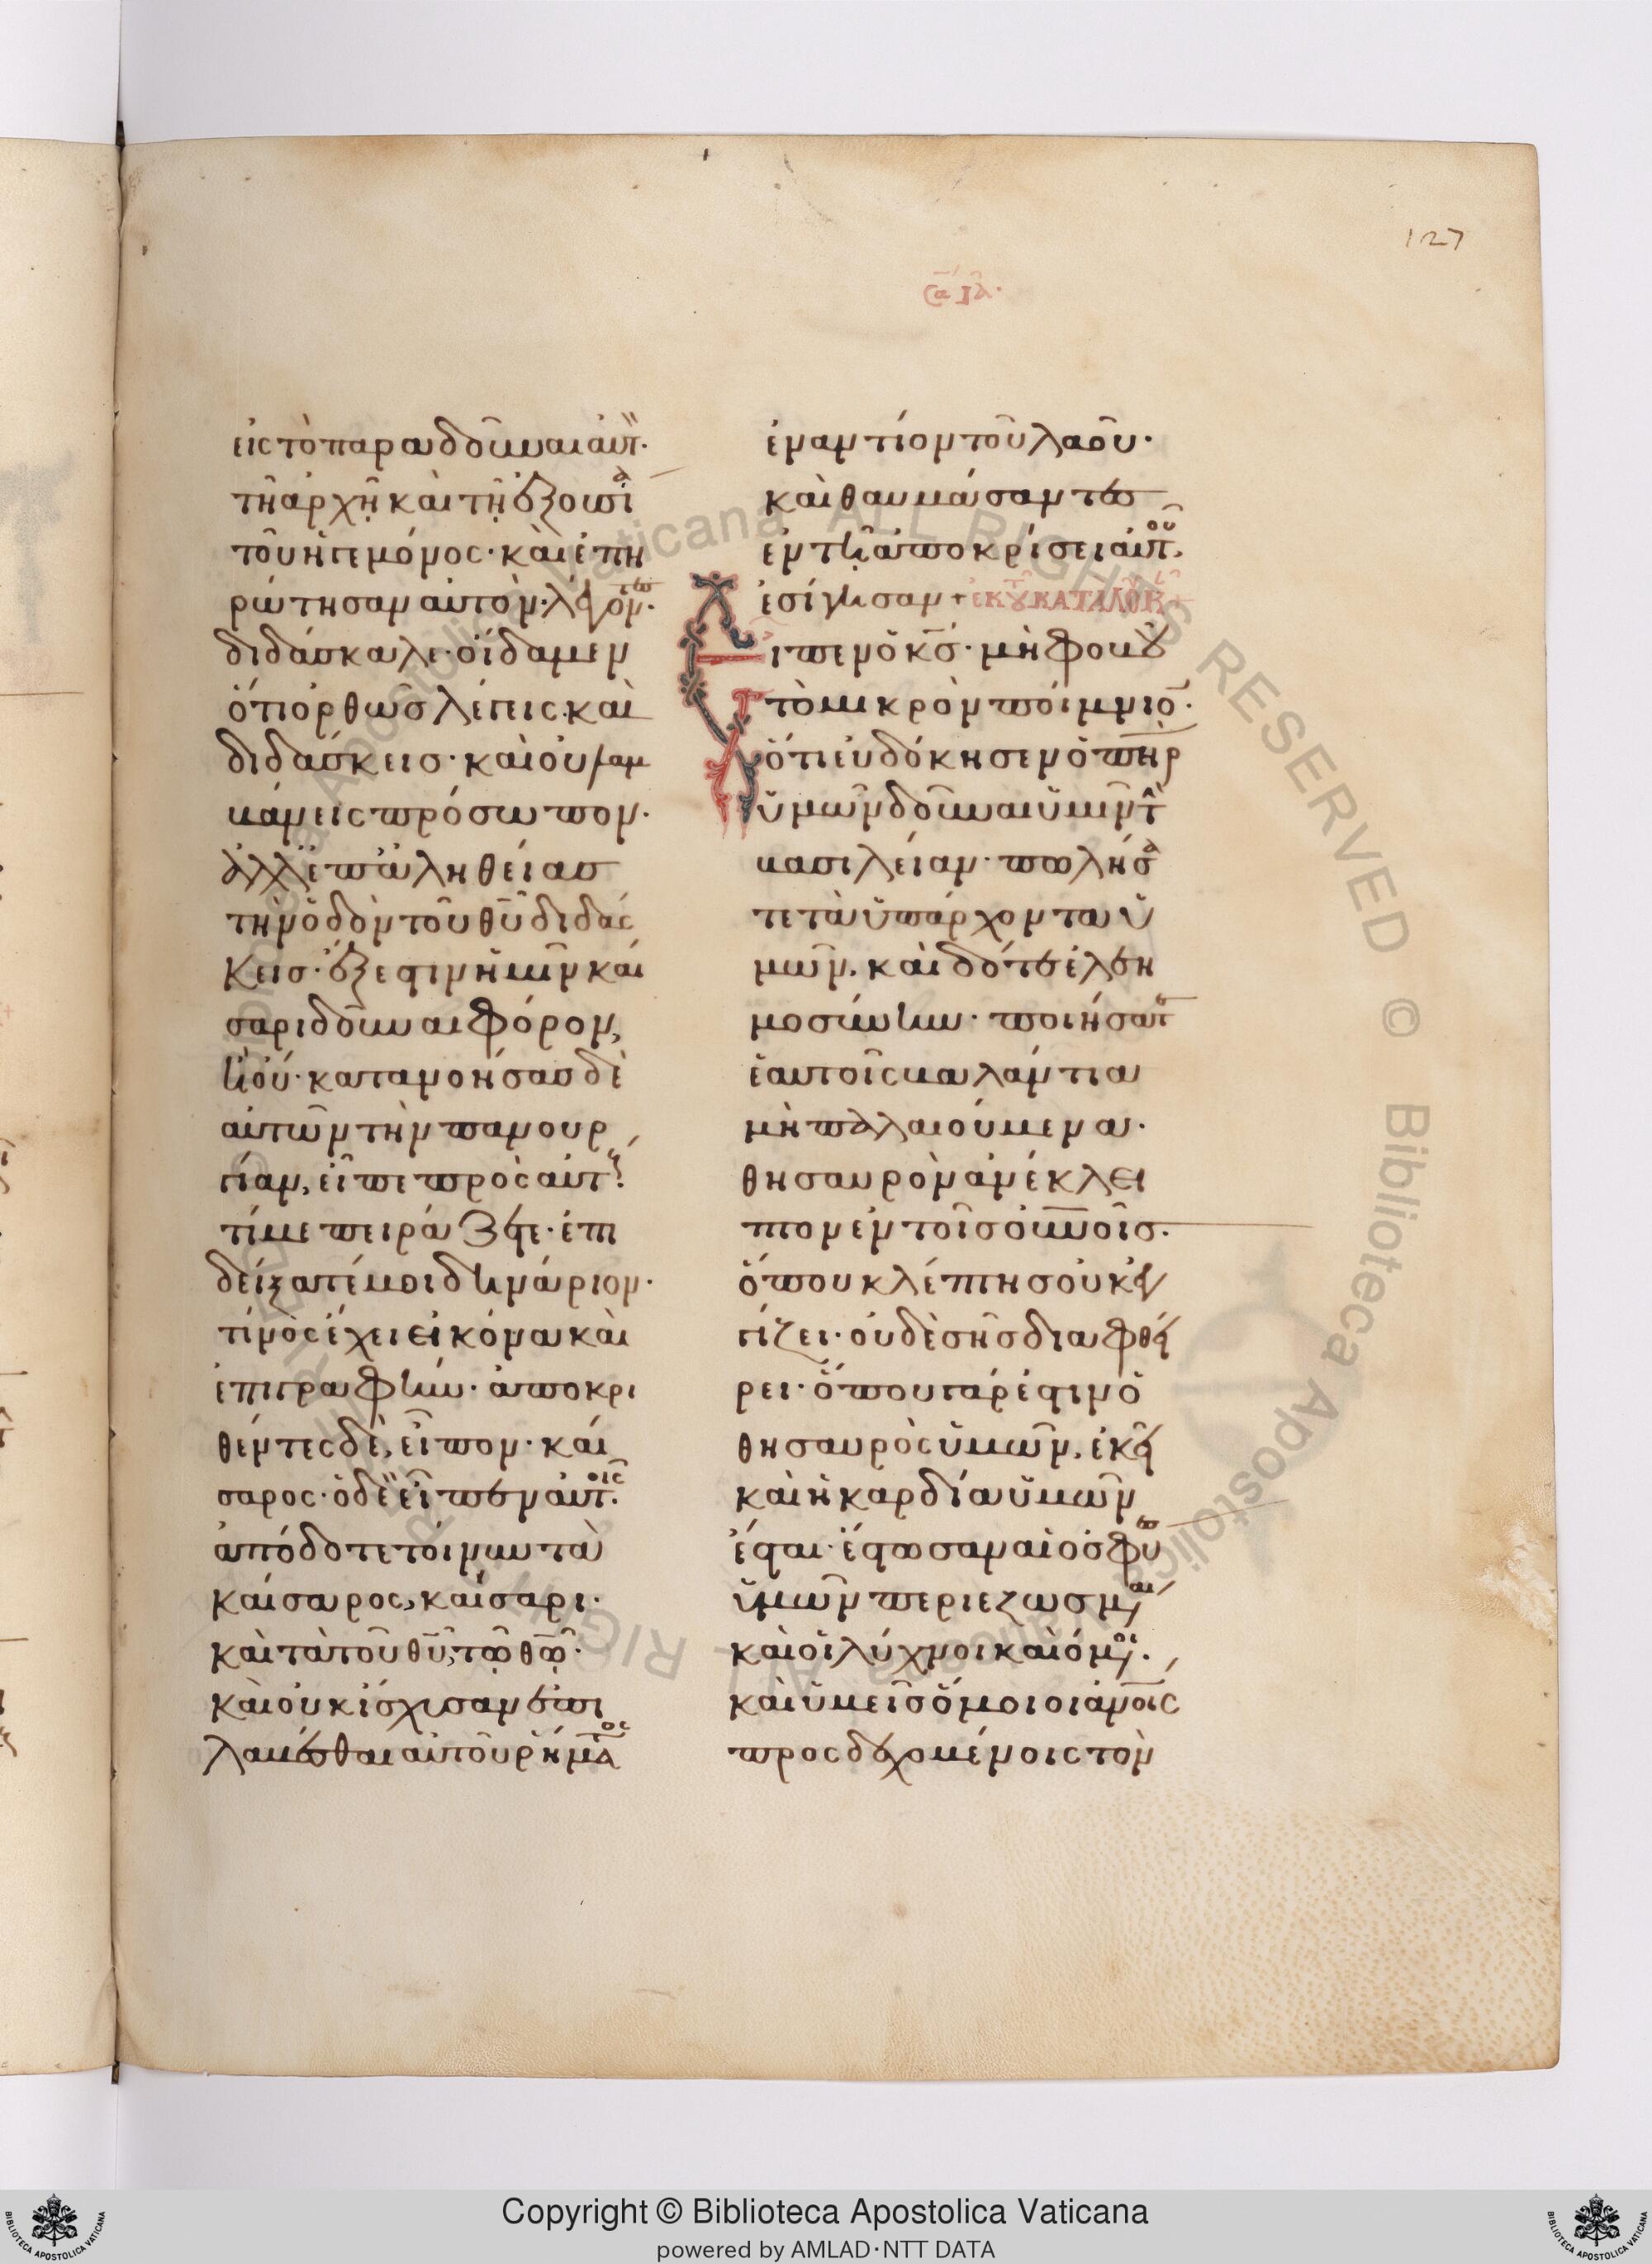 127
εἰς τὸ παραδοῦναι αὐτ̏·
τῆ ἀρχῆ καὶ τῆ ἐξουσί<sup>α</sup>
τοῦ ἡγεμόνος· καὶ ἐπη
ρώτησαν αὐτὸν· λέγον<sup>τες</sup>·
διδάσκαλε· οἴδαμεν
ὅτι ὀρθῶς λέγεις· καὶ
διδάσκεις· καὶ οὐ λαμ
βάνεις πρόσωπον·
ἀλλ' ἐπ' ἀληθείας
τὴν ὁδὸν τοῦ θυ̅ διδάς
κεις· ἔξεστιν ἡμῖν καί
σαρι δοῦναι φόρον,
ἢ οὐ· κατανοήσας δὲ
αὐτῶν τὴν πανουρ
γίαν, εἶπε πρὸς αὐτ<sup>ς</sup>
τί με πειράζετε· ἐπι
δείξατέ μοι δηνάριον·
τίνος ἔχει εἰκόνα καὶ
ἐπιγραφήν· ἀποκρι
θέντες δὲ, εἶπον· καί
σαρος· ὁ δὲ εἶπεν αὐτ<sup>οῖς</sup>·
ἀπόδοτε τοίνυν τὰ
καίσαρος, καίσαρι·
καὶ τὰ τοῦ θυ̅, τῷ θω̅·
καὶ οὐκ ἴσχυσαν ἐπι
λαβέσθαι αὐτοῦ ῥήματ<sup>ος</sup>
ἐναντίον τοῦ λαοῦ·
καὶ θαυμάσαντες
ἐν τῆ ἀποκρίσει αὐτ<sup>οῦ</sup>,
ἐσίγησαν + ἐκ τοῦ κατὰ λουκ
Εἶπεν ὁ κς̅· μὴ φοβοῦ
τὸ μικρὸν ποίμνιον·
ὅτι εὐδόκησεν ὁ πη̅ρ
ὑμῶν δοῦναι ὑμῖν τ<sup>ὴν</sup>
βασιλείαν· πωλήσ<sup>α</sup>
τε τὰ ὑπάρχοντα ὑ
μῶν, καὶ δότε ἐλεη
μοσύνην· ποιήσατ<sup>ε</sup>
ἑαυτοῖς βαλάντια
μὴ παλαιούμενα·
θησαυρὸν ἀνέκλει
πτον ἐν τοῖς οὐ̅νοῖς·
ὅπου κλέπτης οὐκ ἐγ
γίζει· οὐδὲ σὴς διαφθεί
ρει· ὅπου γάρ ἐστιν ὁ
θησαυρὸς ὑμῶν, ἐκεῖ
καὶ ἡ καρδία ὑμῶν
ἔσται· ἔστωσαν αἱ ὀσφύ<sup>ες</sup>
ὑμῶν περιεζωσμέν<sup>αι</sup>
καὶ οἱ λύχνοι καιόμεν<sup>οι</sup>·
καὶ ὑμεῖς ὅμοιοι ἀν̅οις
προσδεχομένοις τὸν
Copyright © Biblioteca Apostolica Vaticana
powered by AMLAD·NTT DATA